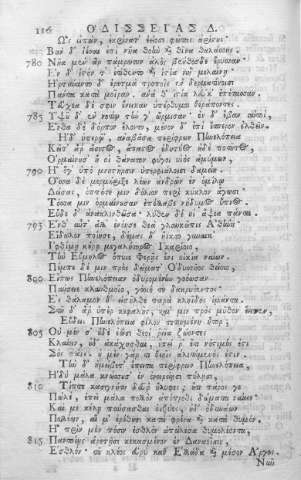 116 ΟΔΥΣΣΕΙΑΣ Δ.
Ὣς εἰπὼν, ἐκρίνατ' ἐείκοσι φῶτας ἀρίστους·
Βὰν δ' ἰέναι ἐπὶ νῆα θοὴν καὶ θῖνα θαλάσσης.
780 Νῆα μὲν ἂν πάμπρωτον ἁλὸς βένθοσδε ἔρυσσαν·
Ἐν δ' ἱστόν τ' ἐτίθεντο καὶ ἱστία νηῒ μελαίνῃ·
Ἠρτύναντο δ' ἐρετμὰ τροποῖς ἐν δερματίνοισι
Πάντα κατὰ μοῖραν, ἀνά θ' ἱστία λευκὰ πέτασσαν.
Τεύχεα δέ σφιν ἔνεικαν ὑπέρθυμοι θεράποντες·
785 Ὑψοῦ δ' ἐν νοτίῳ τήν γ' ὥρμισαν· ἐν δ' ἔβαν αὐτοί,
Ἔνθα δὲ δόρπον ἕλοντο, μένον δ' ἐπὶ ἕσπερον ἐλθεῖν.
Ἡ δ' ὑπερῴῳ ἀναβᾶσα περίφρων Πηνελόπεια
Κεῖτ' ἄρ' ἄσιτος, ἄπαστος ἐδητύος ἠδὲ ποτῆτος,
Ὁρμαίνουσ' ἤ οἱ θάνατον φύγοι υἱὸς ἀμύμων,
790 Ἢ ὅγ' ὑπὸ μνηστῆρσιν ὑπερφιάλοισι δαμείη.
Ὅσσα δὲ μερμήριξε λέων ἀνδρῶν ἐν ὁμίλῳ
Δείσας, ὁππότε μιν δόλιον περὶ κύκλον ἄγωσι·
Τόσσα μιν ὁρμαίνουσαν ἐπήλυθε νήδυμος ὕπνος.
Εὗδε δ' ἀνακλινθεῖσα· λύθεν δέ οἱ ἅψεα πάντα.
795 Ἔνθ' αὖτ' ἄλλ' ἐνόησε θεὰ γλαυκῶπις Ἀθήνη·
Εἴδωλον ποίησε, δέμας δ' ἤϊκτο γυναικὶ
Ἰφθίμῃ κούρῃ μεγαλήτορος Ἰκαρίοιο·
Τὴν Εὔμηλος ὄπυιε Φερῇς ἔνι οἰκία ναίων.
Πέμπε δέ μιν πρὸς δώματ' Ὀδυσσῆος θείοιο,
800 Εἵως Πηνελόπειαν ὀδυρομένην γοόωσαν
Παύσειε κλαυθμοῖο, γόοιό τε δακρυόεντος·
Ἐς θάλαμον δ' εἰσῆλθε παρὰ κληῖδος ἱμάντα.
Στῆ δ' ἄρ' ὑπὲρ κεφαλῆς, καί μιν πρὸς μῦθον ἔειπεν,
Εὕδεις Πηνελόπεια φίλον τετιημένη ἦτορ;
805 Οὐ μέν σ' οὐδὲ ἐῶσι θεοὶ ῥεῖα ζώοντες
Κλαίειν, οὐδ' ἀκάχησθαι, ἐπεί ῥ' ἔτι νόστιμός ἐστι
Σὸς παῖς. οὐ μὲν γάρ τι θεοῖς ἀλιτήμενός ἐστι.
Τὴν δ' ἠμείβετ' ἔπειτα περίφρων Πηνελόπεια,
Ἡδὺ μάλα κνώσσουσ' ἐν ὀνειρείῃσι πύλῃσι,
810 Τίπτε κασιγνήτη δεῦρ' ἤλυθες; οὔτι πάρος γε
Πωλέ', ἐπεὶ μάλα πολλὸν ἀπόπροθι δώματα ναίεις·
Καί με κέλῃ παύσασθαι ὀϊζύος, ἠδ' ὀδυνάων
Πολλέων, αἵ μ' ἐρέθουσι κατὰ φρένα καὶ κατὰ θυμόν·
Ἣ πρὶν μὲν πόσιν ἐσθλὸν ἀπώλεσα θυμολέοντα,
815 Παντοίῃς ἀρετῇσι κεκασμένον ἐν Δαναοῖσιν,
Ἐσθλόν· τοῦ κλέος εὐρὺ καθ' Ἑλλάδα καὶ μέσον Ἄργος·
Νῦν